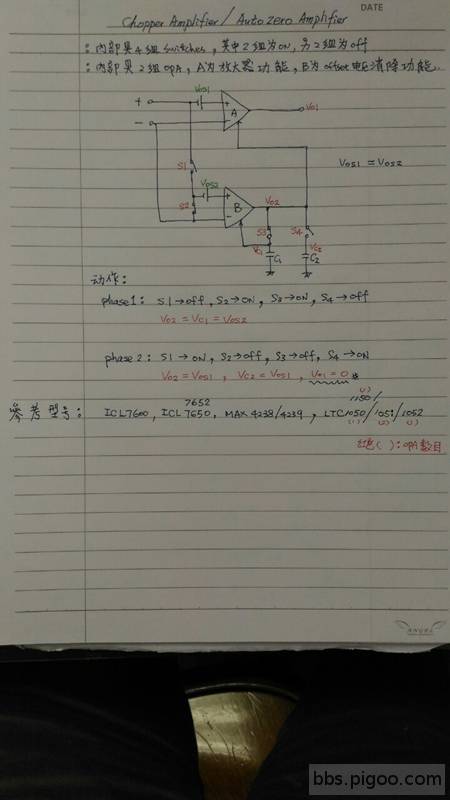 DATE
Chopper Amplifier / Auto zero Amplifier
: 內部具4組 switches, 其中2組為ON, 另2組為off
: 內部具2組OPA, A為放大器功能, B為offset電压消除功能.
Vos1
+
+
A
Vo1
-
-
S1
Vos1 = Vos2
Vos2
+
Vo2
S2
B
-
S3
S4
Vc1
C1
Vc2
C2
动作:
phase1: S1→off, S2→ON, S3→ON, S4→off
Vo2 = Vc1 = Vos2
phase 2: S1→ON, S2→off, S3→off, S4→ON
Vo2 = Vos1, Vc2 = Vos1, Vo1 = 0 *
參考型号: ICL7600, ICL 7650, MAX 4238/4239, LTC1050/1051/1052
7652
(1)
1150/
(1) (2) (1)
紅色( ): OPA數目
ANGEL
bbs.pigoo.com